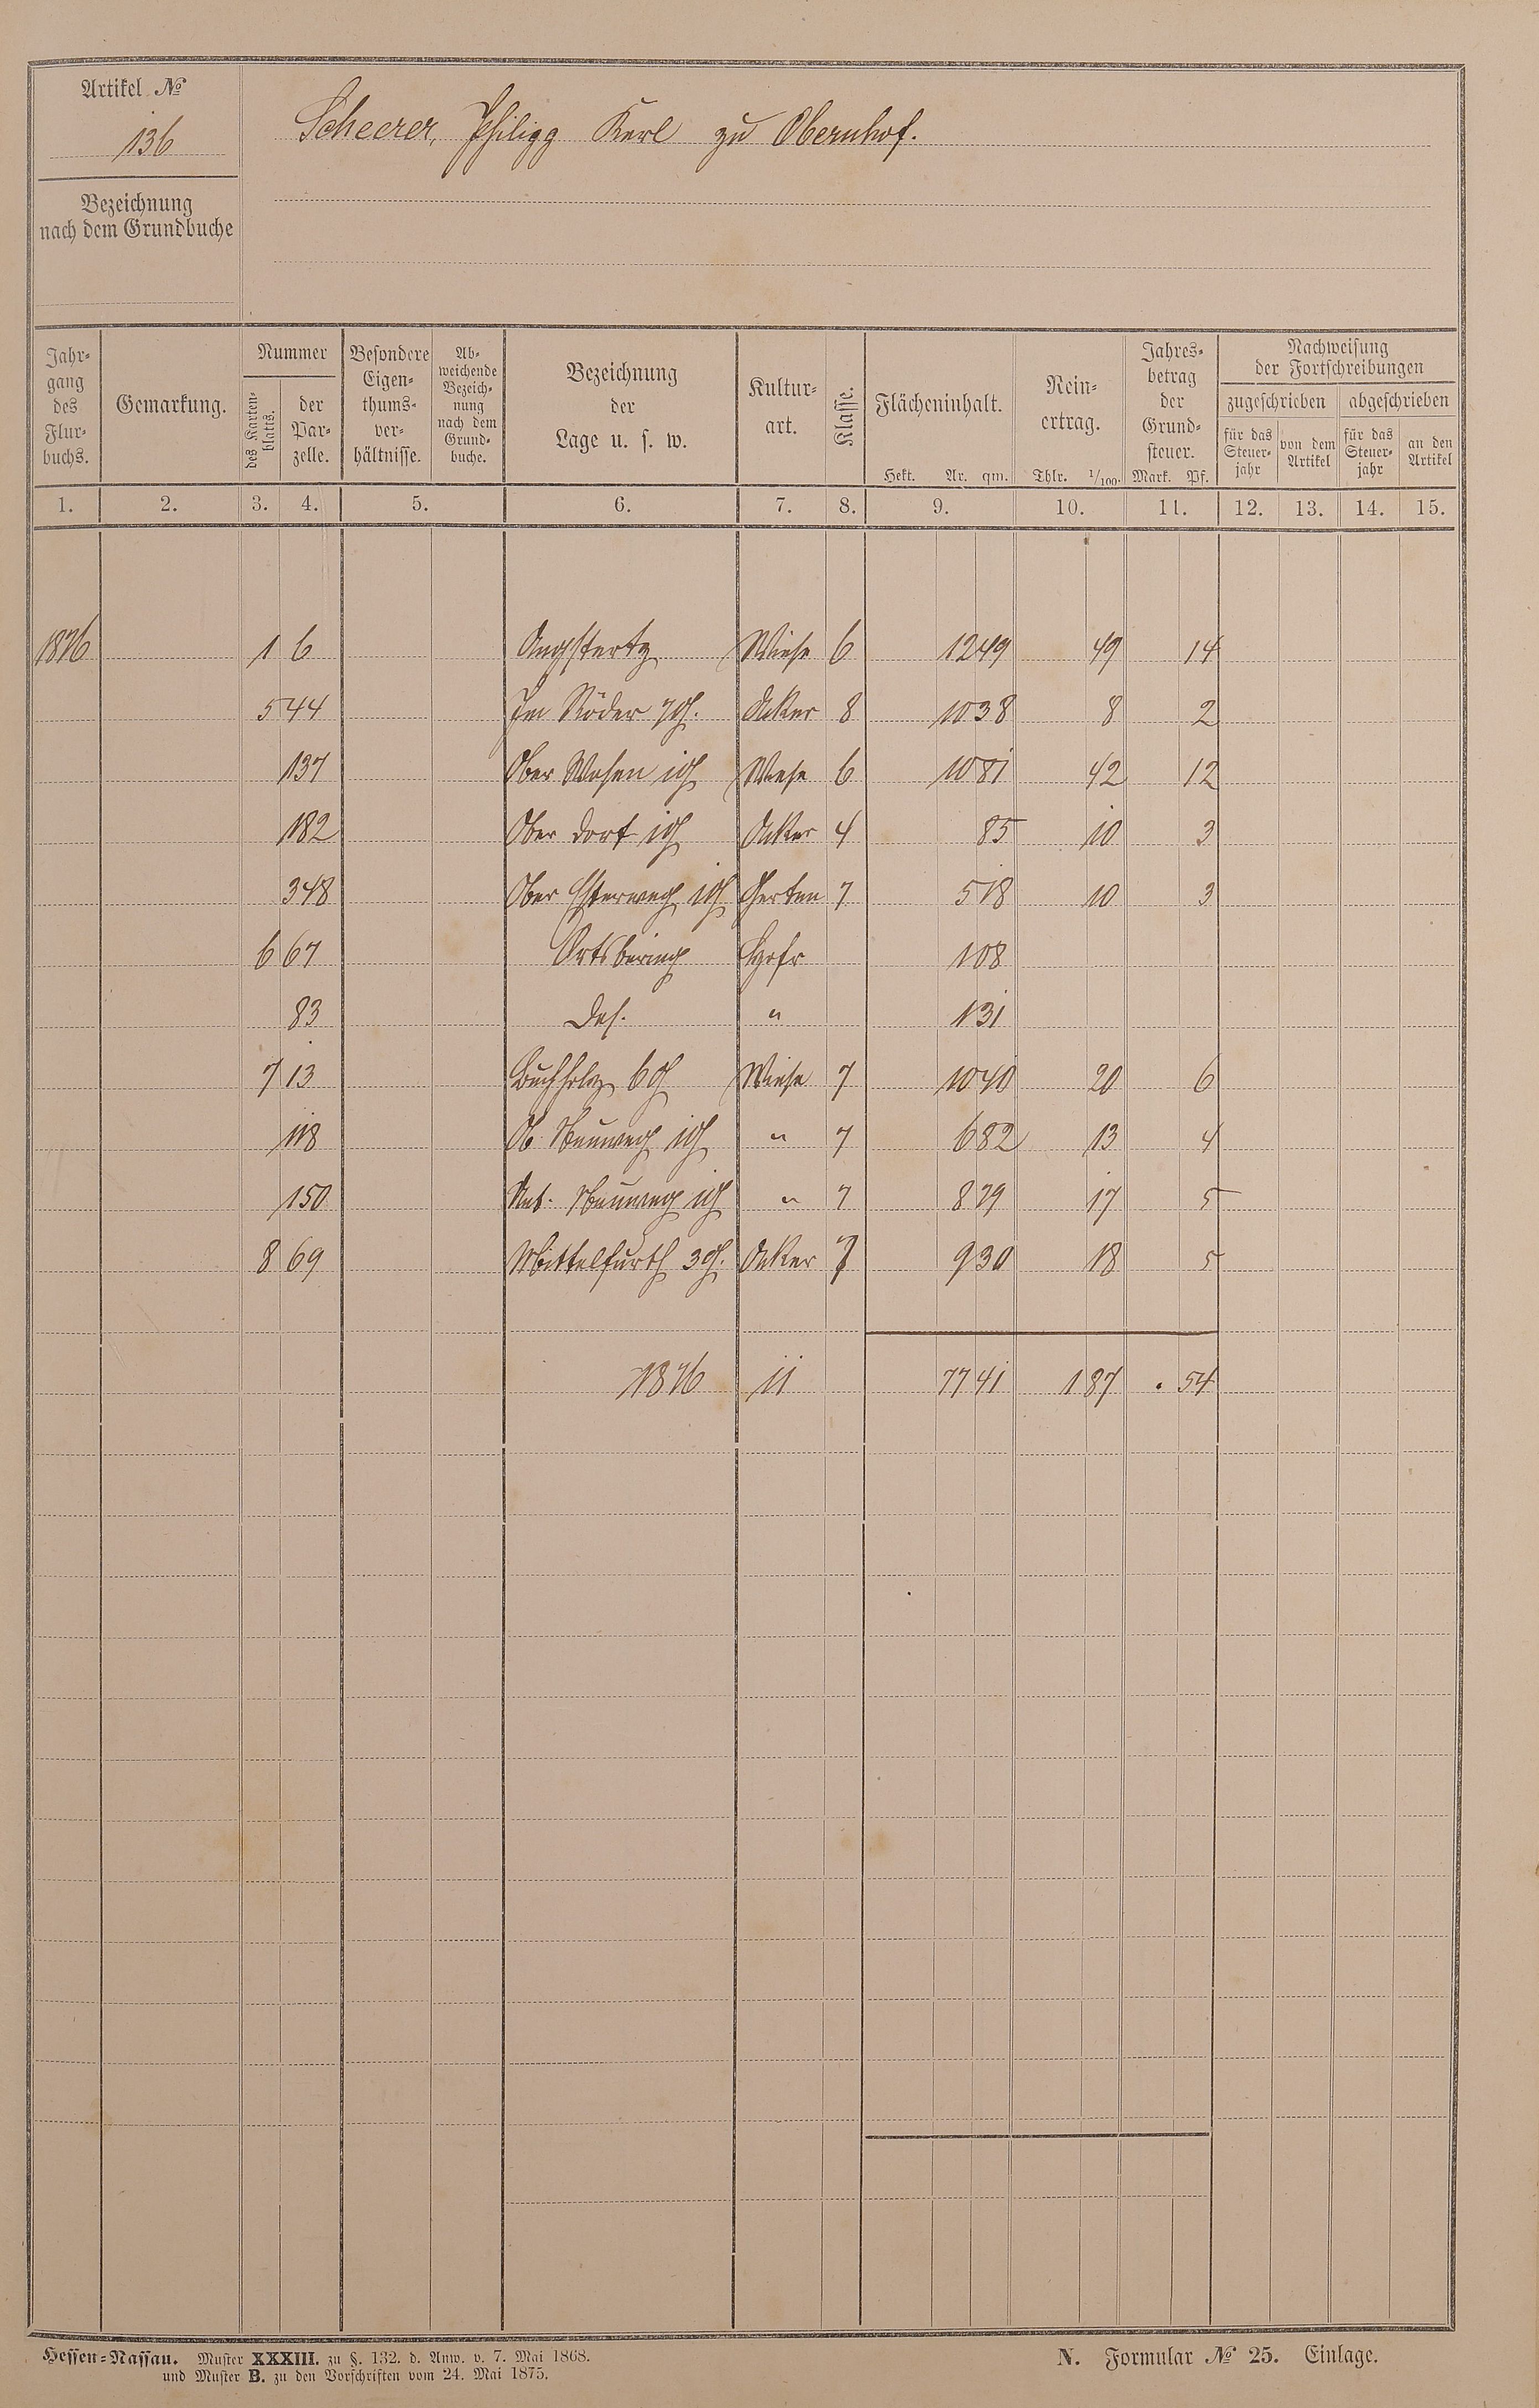 Artikel №
136
Scheerer, Philipp Karl zu Obernhof.
Bezeichnung
nach dem Grundbuche
Jahr-
gang
des
Flur-
buchs.
Gemarkung.
Nummer
des Karten-
blatts.
der
Par-
zelle.
Besondere
Eigen-
thums-
ver-
hältnisse.
Ab-
weichende
Bezeich-
nung
nach dem
Grund-
buche.
Bezeichnung
der
Lage u. s. w.
Kultur-
art.
Klasse.
Flächeninhalt.
Hekt. Ar. qm.
Rein-
ertrag.
Thlr. 1/100.
Jahres-
betrag
der
Grund-
steuer.
Mark. Pf.
Nachweisung
der Fortschreibungen
zugeschrieben abgeschrieben
für das
Steuer-
jahr
von dem
Artikel
für das
Steuer-
jahr
an den
Artikel
1. 2. 3. 4. 5. 6. 7. 8. 9. 10. 11. 12. 13. 14. 15.
1876 1 6 Wiese 6 1249 49 14
5 44 Im Röder 7 G. Acker 8 1038 8 2
137 Ober Wasen 1 G Wiese 6 1081 42 12
182 Ober Dorf 1 G Acker 4 85 10 3
348 Ober 1 G Garten 7 518 10 3
6 67 Ortsbering Hofr 108
83 Das. " 131
7 13 Buchholz 6 G Wiese 7 1040 20 6
118 Ob. Neuweg 1 G " 7 682 13 4
150 Unt. Neuweg 1 G " 7 879 17 5
8 69 Mittelfurth 3 G. Acker 7 930 18 5
1876 11 7741 187 . 54
Hessen-Nassau. Muster XXXIII. zu §. 132. d. Anw. v. 7. Mai 1868.
und Muster B. zu den Vorschriften vom 24. Mai 1875.
N. Formular № 25. Einlage.